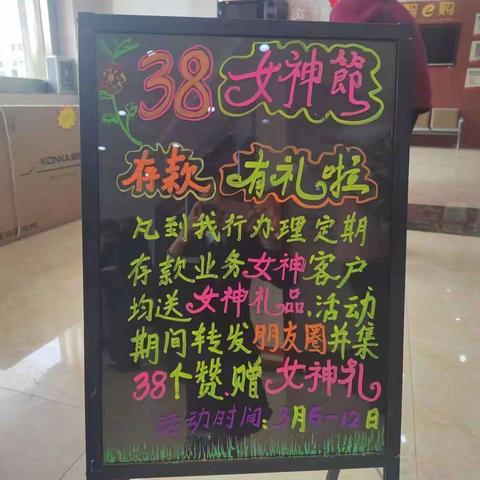 38女神節
存款 有礼啦
凡到我行办理定期
存款业务女神客户
均送女神礼品.活动
期间转发朋友圈并集
38个赞.赠女神礼
活动时间:3月6-12日
KONKA
e购